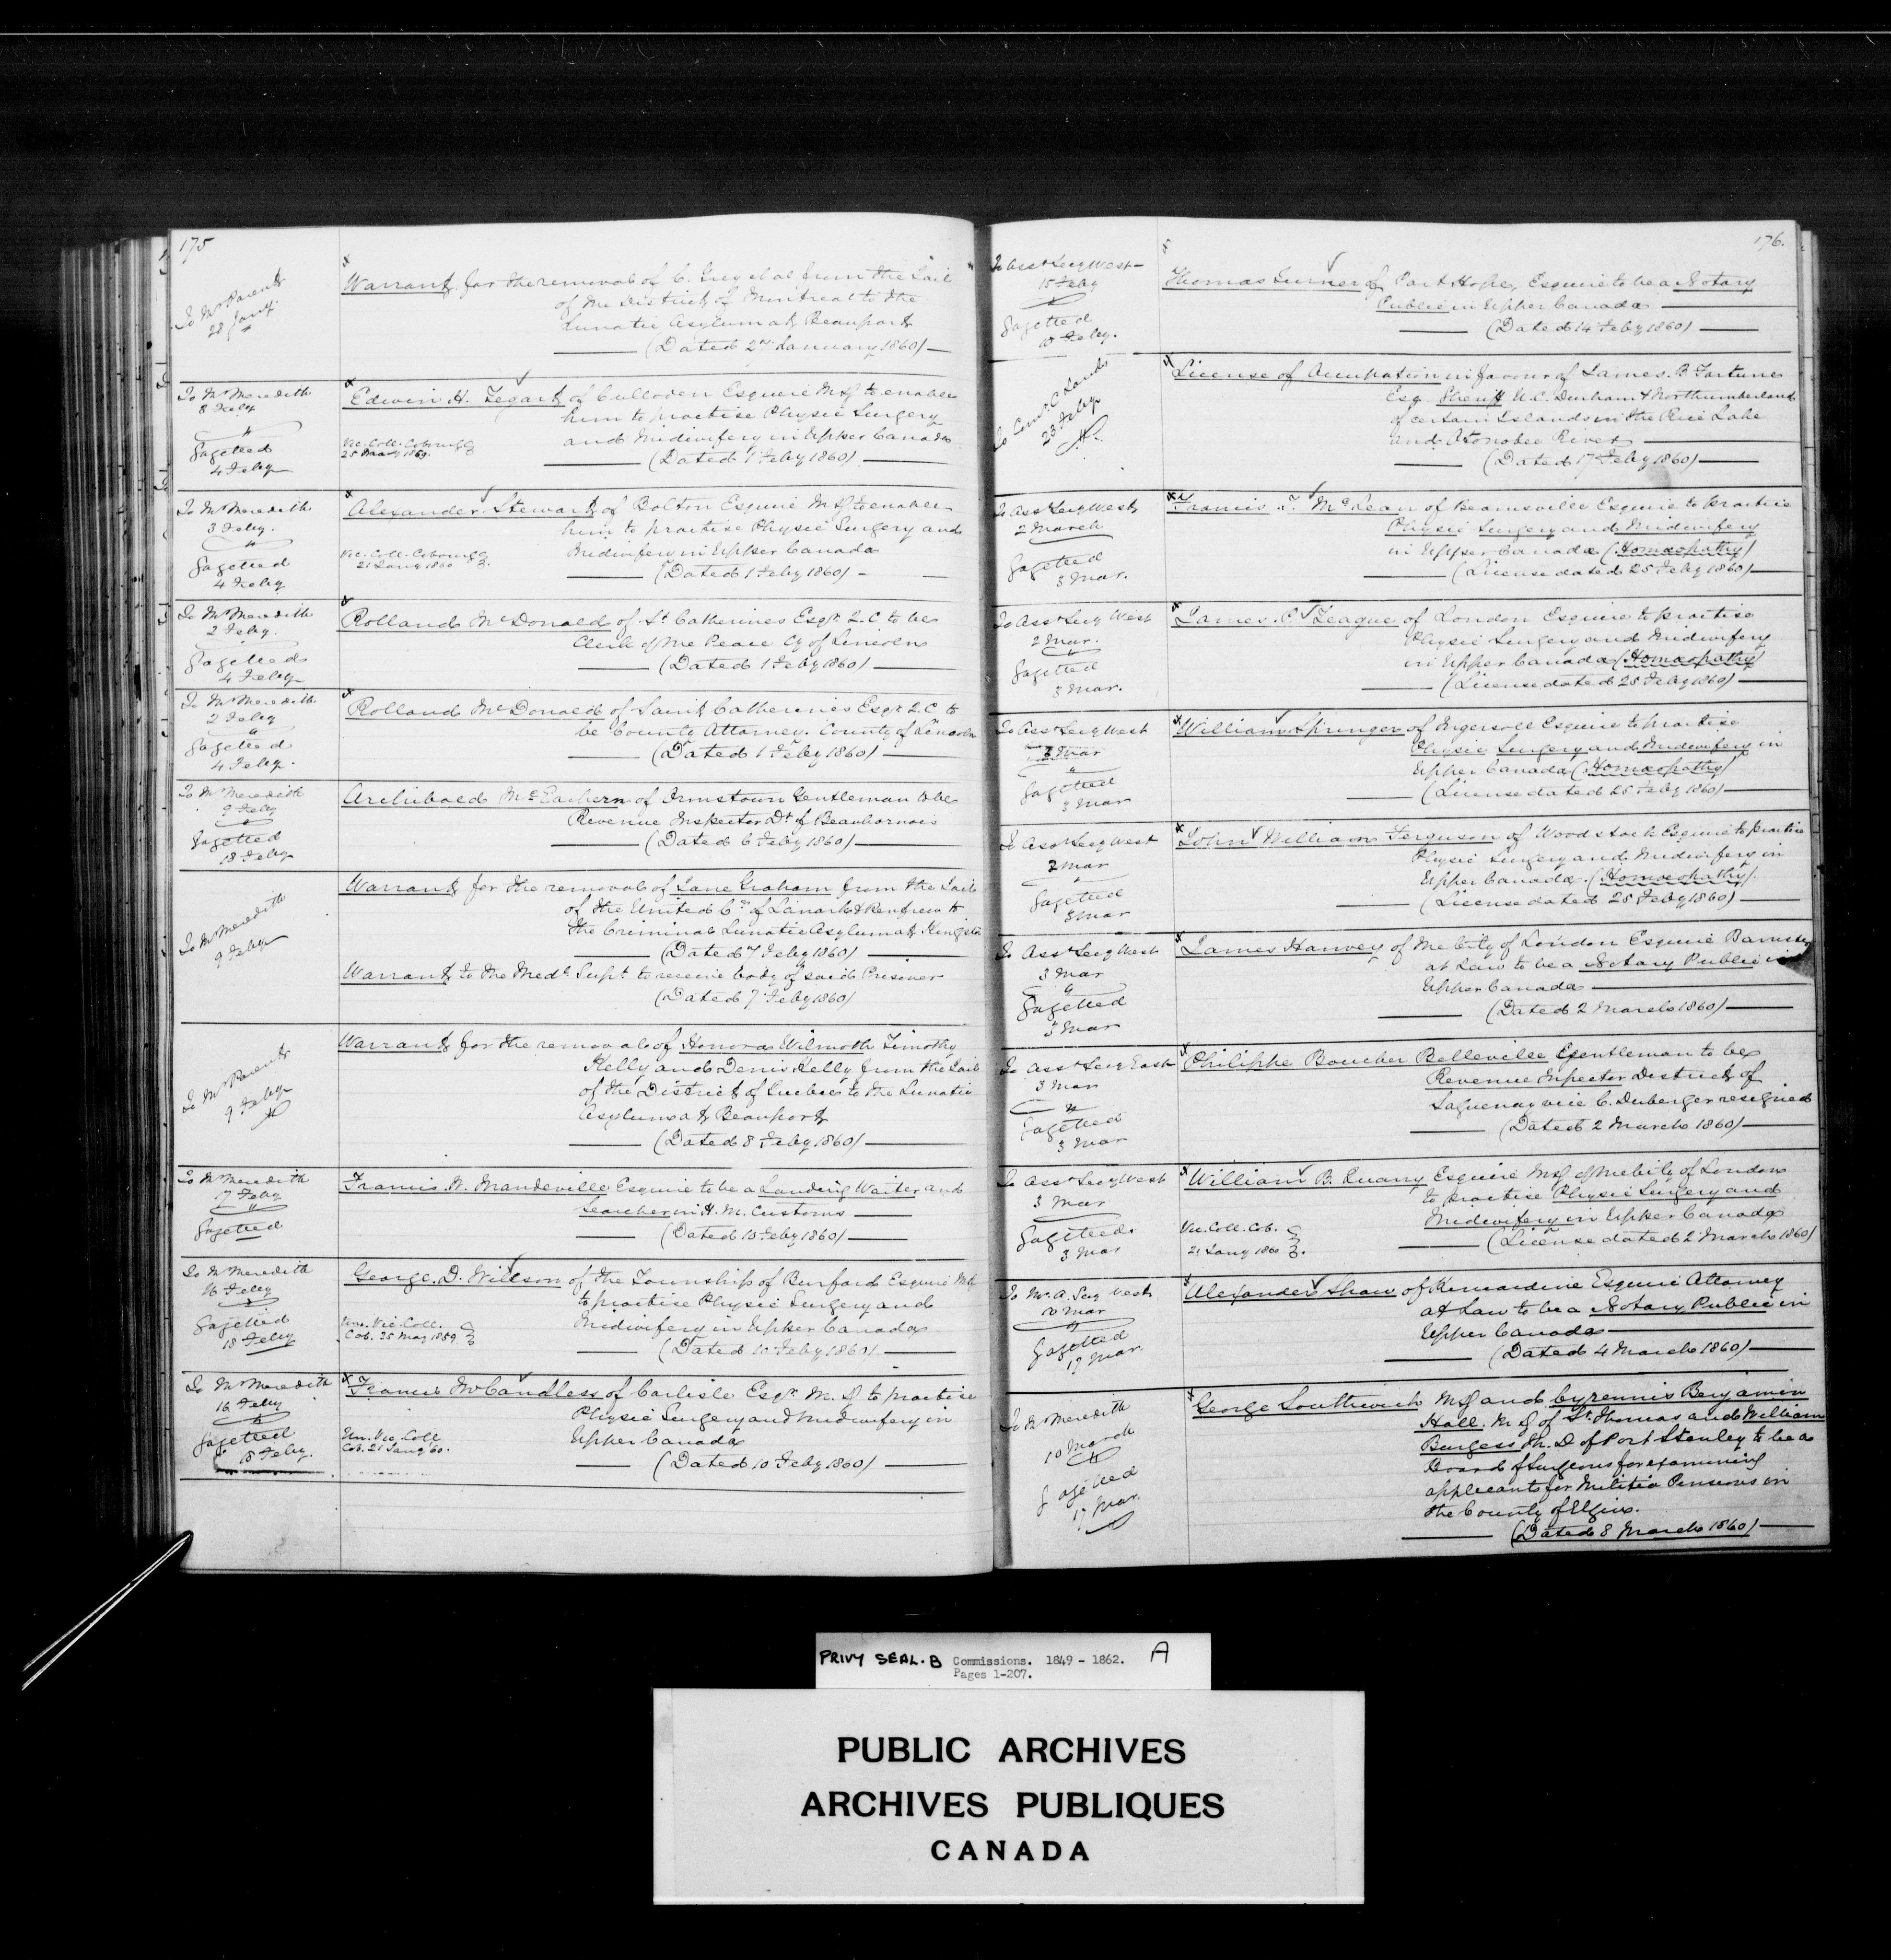 175
To Mr Parent
28 Jany.
Warrant for the removal of C. Grey et al from the Jail
of the District of Montreal to the
Lunatic Asylum at Beauport
(Dated 27 January 1860)
To Mr Meredith
8 Feby
Gazetted
4 Feby
Edwin H. Tegart of Culloden Esquire MD to enable
him to practise Physic Surgery
and Midwifery in Upper Canada
Vic. Coll. Cobourg
(Dated 1 Feby 1860)
To Mr Meredith
3 Feby.
Gazetted
4 Feby
Alexander Stewart of Bolton Esquire MD to enable
him to practise Physic Surgery and
Midwifery in Upper Canada
Vic. Coll. Cobourg
21 Jany 1860
(Dated 1 Feby 1860)
To Mr Meredith
2 Feby.
Gazetted
4 Feby
Rolland McDonald of St Catherines Esqr Q.C to be
Clerk of the Peace Cy of Lincoln
(Dated 1 Feby 1860)
To Mr Meredith
2 Feby
Gazetted
4 Feby.
Rolland McDonald of Saint Catherines Esqr Q.C to
be County Attorney. County of Lincoln
(Dated 1 Feby 1860)
To Mr Meredith
9 Feby
Gazetted
18 Feby
Archibald McEachern of Ormstown Gentleman to be
Revenue Inspector Dt of Beauharnois
(Dated 6 Feby 1860)
To Mr Meredith
9 Feby
Warrant for the removal of Jane Graham from the Jail
of the United Cs of Lanark & Renfrew to
the Criminal Lunatic Asylum at Kingston
(Dated 7 Feby 1860)
Warrant to the Medl Supt to receive body of said Prisoner
(Dated 7 Feby 1860)
To Mr Parent
9 Feby
Warrant for the removal of Honora Wilmoth Timothy
Kelly and Denis Kelly from the Jail
of the District of Quebec to the Lunatic
Asylum at Beauport
(Dated 8 Feby 1860)
To Mr Meredith
17 Feby
Gazetted
Francis W. Mandeville Esquire to be a Landing Waiter and
Searcher in H. M. Customs
(Dated 10 Feby 1860)
To Mr Meredith
16 Feby
Gazetted
18 Feby
George D. Willson of the Township of Burford Esquire MD
to practise Physic Surgery and
Midwifery in Upper Canada
Un. Vic. Coll.
Cob. 25 May 1859
(Dated 10 Feby 1860)
To Mr Meredith
16 Feby
Gazetted
18 Feby.
Francis McCandless of Carlisle Esqr M. D to practise
Physic Surgery and Midwifery in
Upper Canada
Un. Vic. Coll
Cob. 21 Jany 60.
(Dated 10 Feby 1860)
176.
To Asst Secy West
15 Feby
Gazetted
18 Feby.
Thomas Turner of Port Hope, Esquire to be a Notary
Public in Upper Canada
(Dated 14 Feby 1860)
To Comr C. Lands
23 Feby
License of Occupation in favour of James. B Fortune
Esq. Sheriff U.C. Durham & Northumberland
of certain Islands in the Rice Lake
and Otonabee River
(Dated 17 Feby 1860)
To Asst Secy West
2 March
Gazetted
3 Mar.
Francis T. McLean of Beamsville Esquire to practise
Physic Surgery and Midwifery
in Upper Canada (Homæopathy)
(License dated 25 Feby 1860)
To Asst Secy West
2 Mar.
Gazetted
3 Mar.
James. P League of London Esquire to practise
Physic Surgery and Midwifery
in Upper Canada (Homæopathy)
(License dated 25 Feby 1860)
To Asst Secy West
Gazetted
3 Mar
William Springer of Ingersoll Esquire to practise
Physic Surgery and Midwifery in
Upper Canada (Homæopathy)
(License dated 25 Feby 1860)
To Asst Secy West
2 Mar
Gazetted
3 Mar
John William Ferguson of Woodstock Esquire to practise
Physic Surgery and Midwifery in
Upper Canada. (Homæopathy).
(License dated 25 Feby 1860)
To Asst Secy West
3 Mar
Gazetted
3 Mar
James Harvey of the City of London Esquire Barrister
at Law to be a Notary Public in
Upper Canada
(Dated 2 March 1860)
To Asst Secy East
3 Mar
Gazetted
3 Mar
Philippe Boucher Belleville Gentleman to be
Revenue Inspector District of
Saguenay vice C. Duberger resigned
(Dated 2 March 1860)
To Asst Secy West
3 Mar
Gazetted
3 Mar
William B. Quarry Esquire MD of the City of London
to practise Physic Surgery and
Midwifery in Upper Canada
Vic. Coll. Cob.
21 Jany 1860
(License dated 2 March 1860)
To Mr A. Secy West
Gazetted
17 Mar
Alexander Shaw of Kincardine Esquire Attorney
at Law to be a Notary Public in
Upper Canada
(Dated 4 March 1860)
To Mr Meredith
10 March
Gazetted
17 Mar.
George Southwick MD and Cyrennis Benjamin
Hall. M D of St Thomas and William
Burgess M. D of Port Stanley to be a
Board of Surgeons for examining
applicants for Militia Pensions in
the County of Elgin.
(Dated 8 March 1860)
PRIVY SEAL. B Commissions. 1849 - 1862. A
Pages 1-207.
PUBLIC ARCHIVES
ARCHIVES PUBLIQUES
CANADA